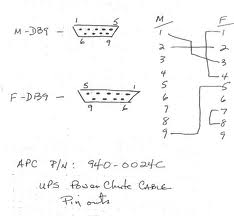 M F
M-DB9 - 1 5
6 9
1 1
2 2
3 3
4 4
5 5
F-DB9 - 5 1
9 6
6 6
7 7
8 8
9 9
APC P/N: 940-0024C
UPS Power Chute CABLE
Pin outs